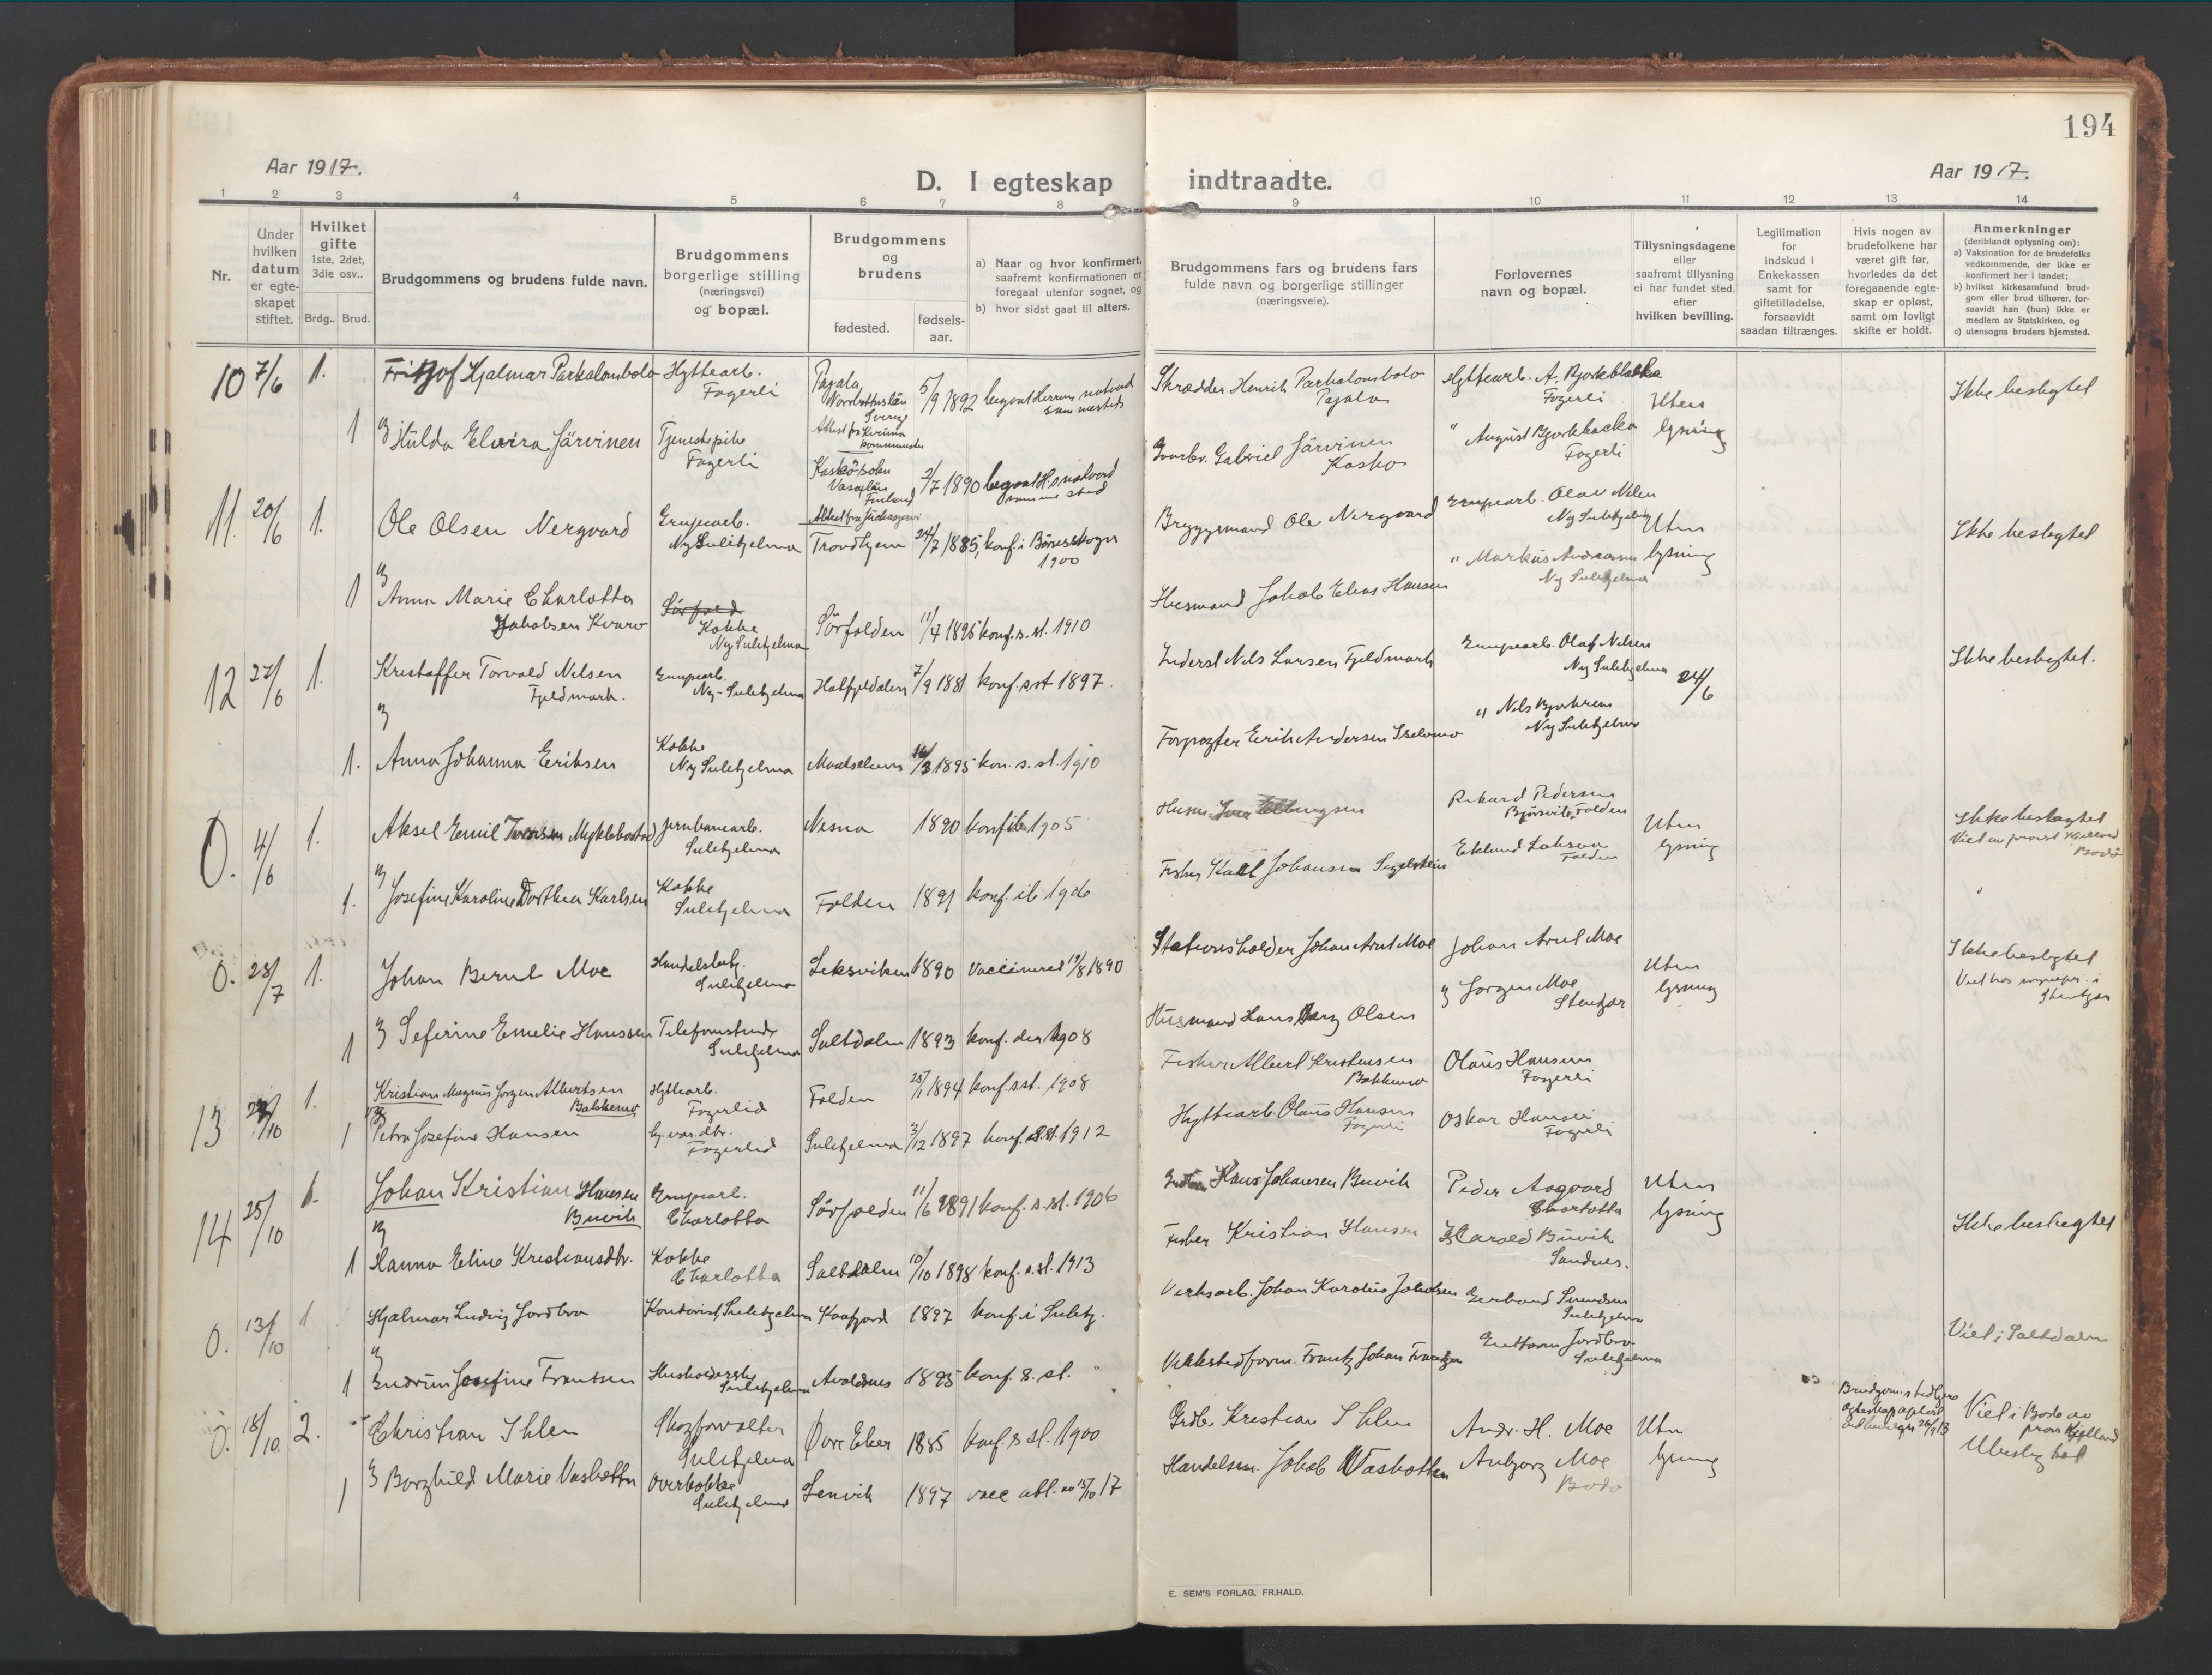 194
Aar 1917.
D. I egteskap indtraadte.
Aar 1917.
1 2 3 4 5 6 7 8 9 10 11 12 13 14
Nr.
Under hvilken datum er egte-skapet stiftet.
Hvilket gifte 1ste, 2det, 3die osv..
Brdg.. Brud.
Brudgommens og brudens fulde navn.
Brudgommens borgerlige stilling (næringsvei) og bopæl.
Brudgommens og brudens
fødested.
fødsels-aar.
a) Naar og hvor konfirmert, saafremt konfirmationen er foregaat utenfor sognet, og
b) hvor sidst gaat til alters.
Brudgommens fars og brudens fars fulde navn og borgerlige stillinger (næringsveie).
Forlovernes navn og bopæl.
Tillysningsdagene eller saafremt tillysning ei har fundet sted. efter hvilken bevilling.
Legitimation for indskud i Enkekassen samt for giftetilladelse, forsaavidt saadan tiltrænges.
Hvis nogen av brudefolkene har været gift før, hvorledes da det foregaaende egte-skap er opløst, samt om lovligt skifte er holdt.
Anmerkninger
(deriblandt oplysning om):
a) Vaksination for de brudefolks vedkommende, der ikke er konfirmert her i landet;
b) hvilket kirkesamfund brud-gom eller brud tilhører, for-saavidt han (hun) ikke er medlem av Statskirken, og
c) utensogns bruders hjemsted.
10 7/6 1. Fritjof Hjalmar Parkalombolo Hyttearb. Fagerli Pajala Sverige 5/9 1892 Skrædder Henrik Parkalombolo Pajala Hyttearb. A. Bjorkbacka Fagerli Uten lysning Ikke beslegtet
1 Hulda Elvira Järvinen Tjenestepike Fagerli Finland 2/7 1890 Gabriel Järvinen Kasko " August Bjorkbacka Fagerli
11. 20/6 1. Ole Olsen Nergaard Grupearb. Ny Sulitjelma Trondhjem 24/7 1885, konf. i 1900 Bryggemand Ole Nergaard Grupearb. Olav Nilsen Ny Sulitjelma Uten lysning Ikke beslegtet
1 Anna Marie Charlotta Jakobsen Kvarv Kokke Ny Sulitjelma Sörfolden 11/7 1895 konf. s. st. 1910 Husmand Jakob Elias Hansen " Markus Andreassen Ny Sulitjelma
12 27/6 1. Kristoffer Torvald Nilsen Fjeldmark. Grupearb. Ny-Sulitjelma Hatfjeldalen 7/9 1881 konf. s st 1897. Inderst Nils Larsen Fjeldmark Grupearb. Olaf Nilsen Ny Sulitjelma 24/6 Ikke beslegtet.
1. Anna Johanna Eriksen Kokke Ny Sulitjelma Maalselven 1895 kon. s. st. 1910 Forpagter Erik Andersen " Nils Ny Sulitjelma
0. 4/6 1. Aksel Emil Iversen Myklebostad Jernbanearb. Sulitjelma Nesna 1890 konf. ib 1905 Rikard Pedersen Folden Uten lysning Ikke beslegtet Viet av provst Bodø
1. Josefine Karoline Dorthea Karlsen Kokke Sulitjelma Folden 1891 konf. ib 1906 Fisker Karl Johansen Folden
0. 28/7 1. Johan Bernt Moe Sulitjelma Leksviken 1890 Vaccineret 19/8 1890 Stationsholder Johan Arnt Moe Johan Arnt Moe Uten lysning Ikke beslegtet
1 Seferine Emelie Hanssen Sulitjelma Saltdalen 1893 konf. der 1908 Husmand Hans Olsen Jørgen Moe
13 1. Kristian Magnus Jørgen Albertsen Bakkemo Hyttearb. Fagerlid Folden 1894 konf. s st. 1908 Fisker Albert Kristensen Bakkemo Olaus Hansen Fagerli
1 Petra Josefine Hansen Fagerlid Sulitjelma 3/12 1897 konf. s. st. 1912 Hyttearb. Olaus Hansen Fagerli Oskar Hansen Fagerli
14 25/10 1. Johan Kristian Hansen Buvik Grupearb. Charlotta Sörfolden 11/6 1891 konf. s. st. 1906 Hans Johansen Buvik Peder Aagaard Charlotta Uten lysning Ikke beslegtet
1 Hanna Eline Kristiansdtr. Kokke Charlotta Saltdalen 10/10 1898 konf. s. st. 1913 Fisker Kristian Hansen Harald Buvik Sandnes.
0. 13/10 1 Hjalmar Ludvig Jordbro Kontorist, Sulitjelma Kaafjord 1897 konf. i Sulitj. Verksarb. Johan Karolius Sulitjelma Viet i Saltdalen
1 Gudrun Josefine Frantsen Husholderske Sulitjelma Avaldsnes 1895 konf. s. st. Frantz Johan Frantzen Guttorm Jordbro Sulitjelma
0. 18/10 2. Christian Ihlen Skogforvalter Sulitjelma Øvre Eker 1885 konf. s. st. 1900 Grdbr. Kristian Ihlen Andr. H. Moe Uten lysning Viet i Bodø av Ubeslegtet
1 Borghild Marie Vashotten Overkokke Sulitjelma Lenvik 1897 vacc. 15/10 17 Handelsm. Jakob Vashotten Anbjorg Moe Bodø
E. SEM'S FORLAG, FR.HALD.